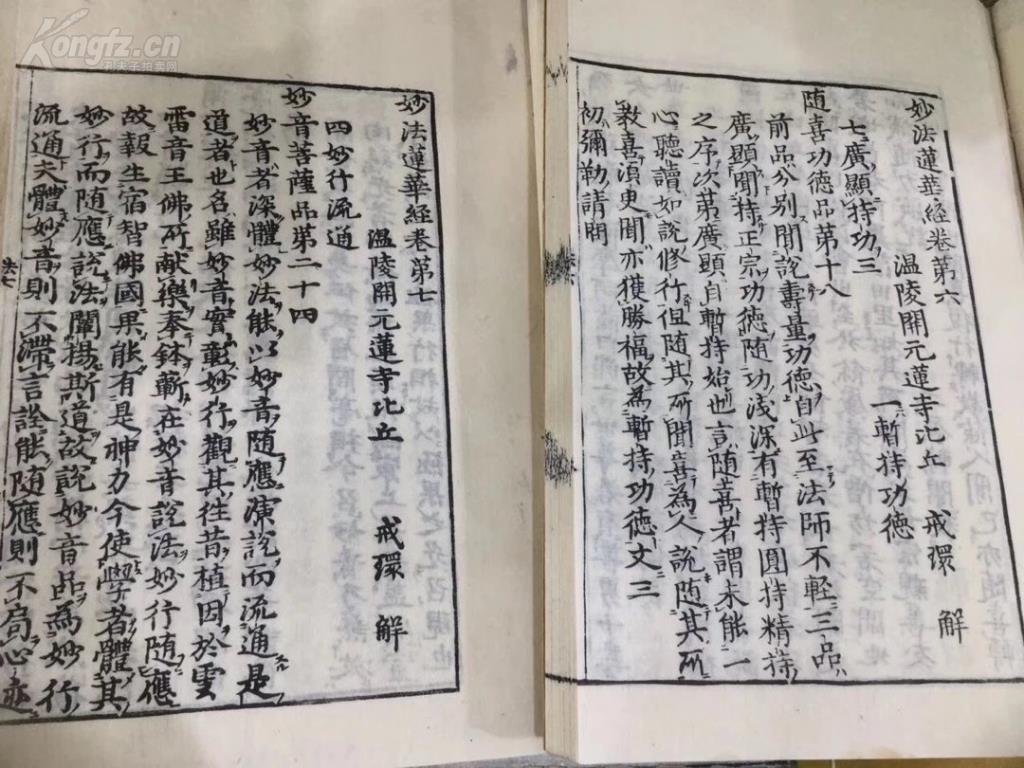 Kongfz.cn
孔夫子拍卖网
妙法蓮華經卷第六
温陵開元蓮寺比丘 戒環 解
七廣顯持功三 一暫持功德
随喜功德品第十八
前品分别聞說壽量功德自此至法師不輕三品
廣顯聞持正宗功德随功浅深有暫持圓持精持
之序次第廣顯自暫持始也言随喜者謂未能一
心聽讀如說修行但随其所聞喜為人說随其所
教喜湏臾聞亦獲勝福故為暫持功德文三
初彌勒請問
妙法蓮華經卷第七
温陵開元蓮寺比丘 戒環 解
四妙行流通
妙音菩薩品第二十四
妙音者深體妙法能以妙音随應演說而流通是
道者也名雖妙音實彰妙行觀其往昔植因於雲
雷音王佛所献樂奉鉢蘄在妙音說法妙行随應
故報生宿智佛國果能有是神力今使學者體其
妙行而随應說法闡揚斯道故說妙音品為妙行
流通夫體妙音則不滯言詮能随應則不局心迹
法七